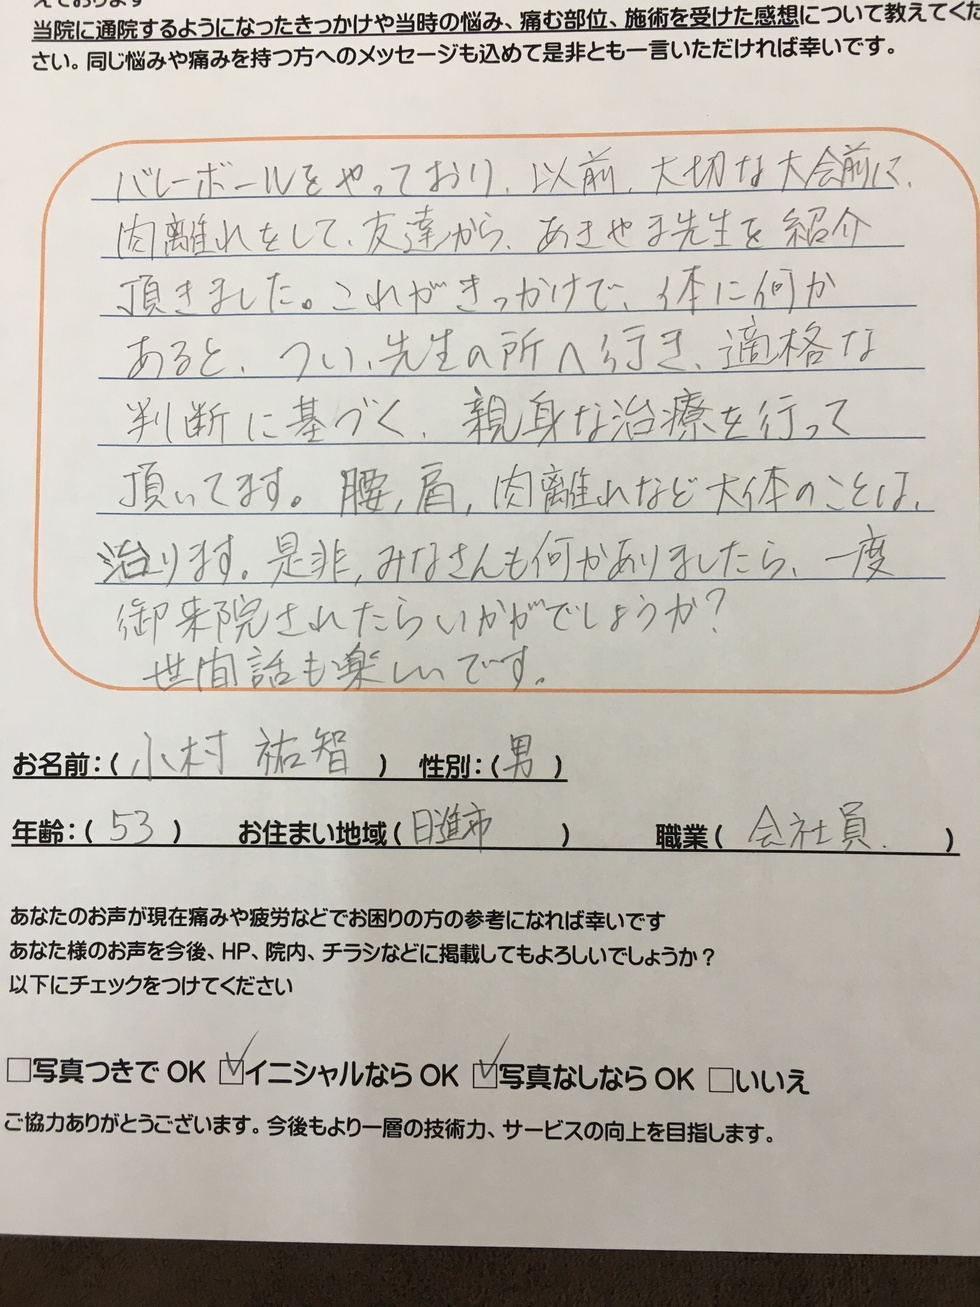 えております
当院に通院するようになったきっかけや当時の悩み、痛む部位、施術を受けた感想について教えてくだ
さい。同じ悩みや痛みを持つ方へのメッセージも込めて是非とも一言いただければ幸いです。
バレーボールをやっており、以前、大切な大会前に、
肉離れをして、友達から、あきやま先生を紹介
頂きました。これがきっかけで、体に何か
あると、つい、先生の所へ行き、適格な
判断に基づく、親身な治療を行って
頂いてます。腰,肩,肉離れなど大体のことは、
治ります。是非,みなさんも何かありましたら、一度
御来院されたらいかがでしょうか?
世間話も楽しいです。
お名前:(小村 祐智) 性別:(男)
年齢:(53) お住まい地域(日進市) 職業(会社員.)
あなたのお声が現在痛みや疲労などでお困りの方の参考になれば幸いです
あなた様のお声を今後、HP、院内、チラシなどに掲載してもよろしいでしょうか?
以下にチェックをつけてください
□写真つきでOK ☑イニシャルならOK ☑写真なしならOK □いいえ
ご協力ありがとうございます。今後もより一層の技術力、サービスの向上を目指します。